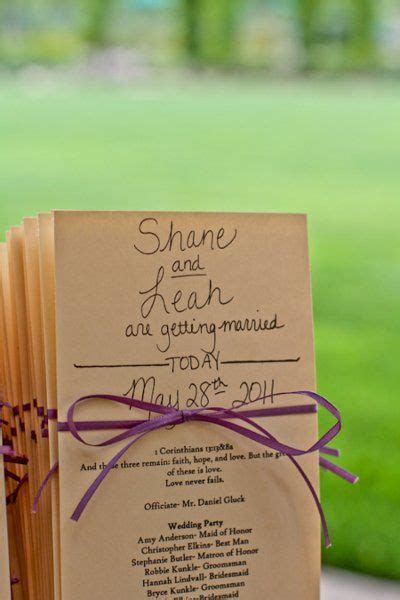 Shane
and
Leah
are getting married
TODAY
May 28th 2011
1 Corinthians 13:13&8a
And these three remain: faith, hope, and love. But the
of these is love.
Love never fails.
Officiate- Mr. Daniel Gluck
Wedding Party
Amy Anderson- Maid of Honor
Christopher Elkins- Best Man
Stephanie Butler- Matron of Honor
Robbie Kunkle- Groomsman
Hannah Lindvall- Bridesmaid
Bryce Kunkle- Groomsman
Bridesmaid